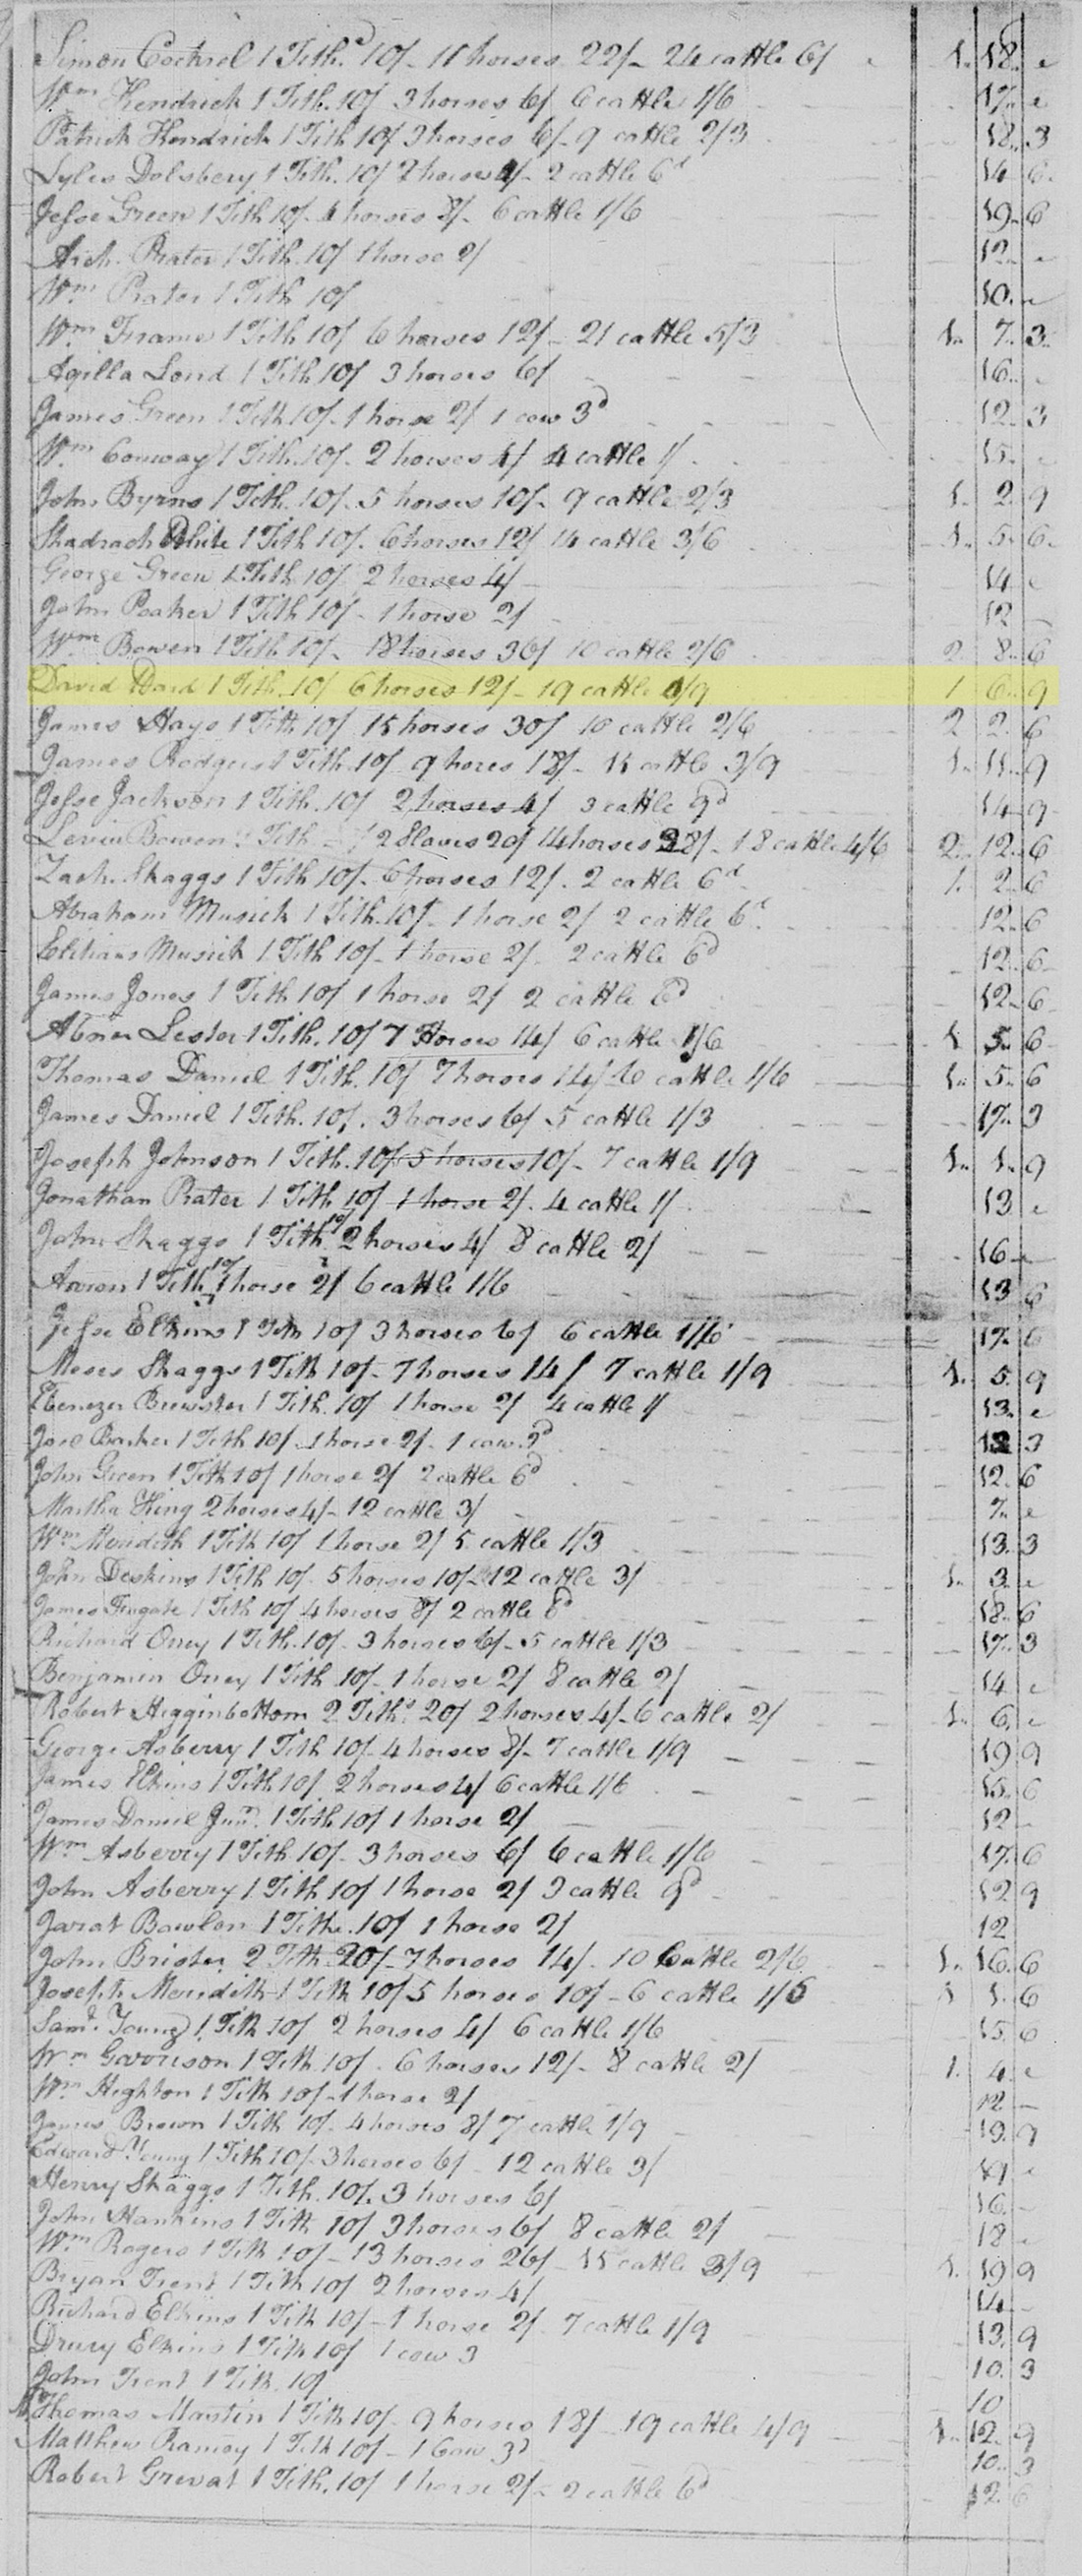 Simon Cockrel 1 Tithd. 10/- 11 horses 22/- 24 cattle 6/ 1.. 18.. "
Wm Kendrick 1 Tith. 10/ 3 horses 6/ 6 cattle 1/6 17.. "
Patrick Kendrick 1 Tith 10/ 3 horses 6/- 9 cattle 2/3 18.. 3
Lyles Dolsbery 1 Tith. 10/ 2 horses 4/- 2 cattle 6d 14 6
Jesse Green 1 Tith 10/- 4 horses 8/- 6 cattle 1/6 19.. 6
Arch. Prater 1 Tith. 10/ 1 horse 2/ 12.. "
Wm. Prater 1 Tith 10/ 10.. "
Wm Frame 1 Tith 10/ 6 horses 12/- 21 cattle 5/3 1.. 7.. 3
Aqilla Lond 1 Tith 10/ 3 horses 6/ 16..
James Green 1 Tith 10/- 1 horse 2/ 1 cow 3d 12.. 3
Wm Conway 1 Tith. 10/- 2 horses 4/ 4 cattle 1/ 15..
John Byrns 1 Tith. 10/- 5 horses 10/- 9 cattle 2/3 1.. 2.. 9
Shadrach White 1 Tith 10/- 6 horses 12/ 14 cattle 3/6 1.. 5.. 6
George Green 1 Tith 10/ 2 horses 4/ 14 "
John Peaker 1 Tith 10/- 1 horse 2/ 12
Wm Bowen 1 Tith. 10/- 18 horses 36/ 10 cattle 2/6 2. 8.. 6
David Ward 1 Tith. 10/ 6 horses 12/- 19 cattle 4/9 1 6.. 9
James Hays 1 Tith 10/ 15 horses 30/ 10 cattle 2/6 2 2.. 6
James Rodgers 1 Tith. 10/ 9 hores 18/- 15 cattle 3/9 1.. 11.. 9
Jesse Jackson 1 Tith. 10/ 2 horses 4/ 3 cattle 9d 14.. 9
Levin Bowen Tith 2 Slaves 20/ 14 horses 28/- 18 cattle 4/6 2.. 12.. 6
Zach. Skaggs 1 Tith 10/- 6 horses 12/. 2 cattle 6d 1. 2.. 6
Abraham Musick 1 Tith. 10/- 1 horse 2/ 2 cattle 6d. 12.. 6
Musick 1 Tith 10/- 1 horse 2/. 2 cattle 6d 12.. 6
James Jones 1 Tith 10/ 1 horse 2/ 2 cattle 6d 12.. 6
Abner Lester 1 Tith. 10/ 7 Horses 14/ 6 cattle 1/6 1 5.. 6
Thomas Daniel 1 Tith. 10/ 7 horses 14/- 6 cattle 1/6 1.. 5.. 6
James Daniel 1 Tith. 10/. 3 horses 6/ 5 cattle 1/3 17.. 3
Joseph Johnson 1 Tith. 10/ 5 horses 10/- 7 cattle 1/9 1.. 1.. 9
Jonathan Prater 1 Tith 10/ 1 horse 2/. 4 cattle 1/ 13 "
John Skaggs 1 Tith 10/ 2 horses 4/ 8 cattle 2/ 16
Aaron 1 Tith 10/ 1 horse 2/ 6 cattle 1/6 13 6
Jesse Elkins 1 Tith 10/ 3 horses 6/ 6 cattle 1/6 17.. 6
Moses Skaggs 1 Tith 10/- 7 horses 14/ 7 cattle 1/9 1. 5. 9
Ebenezer Brewster 1 Tith. 10/ 1 horse 2/ 4 cattle 1/ 13.. "
Joel Barker 1 Tith 10/. 1 horse 2/. 1 cow 3d 12 3
John Green 1 Tith 10/ 1 horse 2/ 2 cattle 6d 12.. 6
Martha King 2 horses 4/- 12 cattle 3/ 7.. "
Wm Meridith 1 Tith 10/ 1 horse 2/ 5 cattle 1/3 13.. 3
John Deskins 1 Tith 10/. 5 horses 10/- 12 cattle 3/ 1.. 3.. "
James 1 Tith 10/ 4 horses 8/ 2 cattle 6d 18.. 6
Richard Oney 1 Tith. 10/- 3 horses 6/- 5 cattle 1/3 17.. 3
Benjamin Oney 1 Tith 10/- 1 horse 2/ 8 cattle 2/ 14 "
Robert Higginbottom 2 Tiths. 20/ 2 horses 4/- 6 cattle 2/ 1.. 6. "
George Asberry 1 Tith 10/- 4 horses 8/- 7 cattle 1/9 19 9
James Elkins 1 Tith 10/ 2 horses 4/ 6 cattle 1/6 15.. 6
James Daniel Junr. 1 Tith 10/ 1 horse 2/ 12
Wm Asberry 1 Tith. 10/- 3 horses 6/ 6 cattle 1/6 17.. 6
John Asberry 1 Tith 10/ 1 horse 2/ 3 cattle 9d 12 9
Jarat Bowlen 1 Tithe. 10/ 1 horse 2/ 12
John Brister 2 Tith 20/- 7 horses 14/- 10 Cattle 2/6 1.. 16.. 6
Joseph Meridith 1 Tith 10/ 5 horses 10/- 6 cattle 1/6 1 1.. 6
Saml. Young 1 Tith 10/ 2 horses 4/ 6 cattle 1/6 15 6
Wm Garrison 1 Tith. 10/- 6 horses 12/- 8 cattle 2/ 1. 4. "
Wm. Highton 1 Tith 10/- 1 horse 2/ 12
James Brown 1 Tith 10/- 4 horses 8/ 7 cattle 1/9 19. 9
Edward Young 1 Tith 10/- 3 horses 6/ - 12 cattle 3/ 19 "
Henry Skaggs 1 Tith. 10/. 3 horses 6/ 16
John Hankins 1 Tith 10/ 3 horses 6/ 8 cattle 2/ 18
Wm Rogers 1 Tith 10/- 13 horses 26/- 15 cattle 3/9 1. 19 9
Bryan Trent 1 Tith 10/ 2 horses 4/ 14
Richard Elkins 1 Tith 10/- 1 horse 2/. 7 cattle 1/9 13. 9
Drury Elkins 1 Tith 10/ 1 cow 3 10. 3
John Trent 1 Tith. 10/ 10
Thomas Mastin 1 Tith 10/- 9 horses 18/- 19 cattle 4/9 1.. 12.. 9
Matthew Ramey 1 Tith 10/- 1 Cow 3d 10.. 3
Robert Grevat 1 Tith. 10/ 1 horse 2/- 2 cattle 6d 12. 6